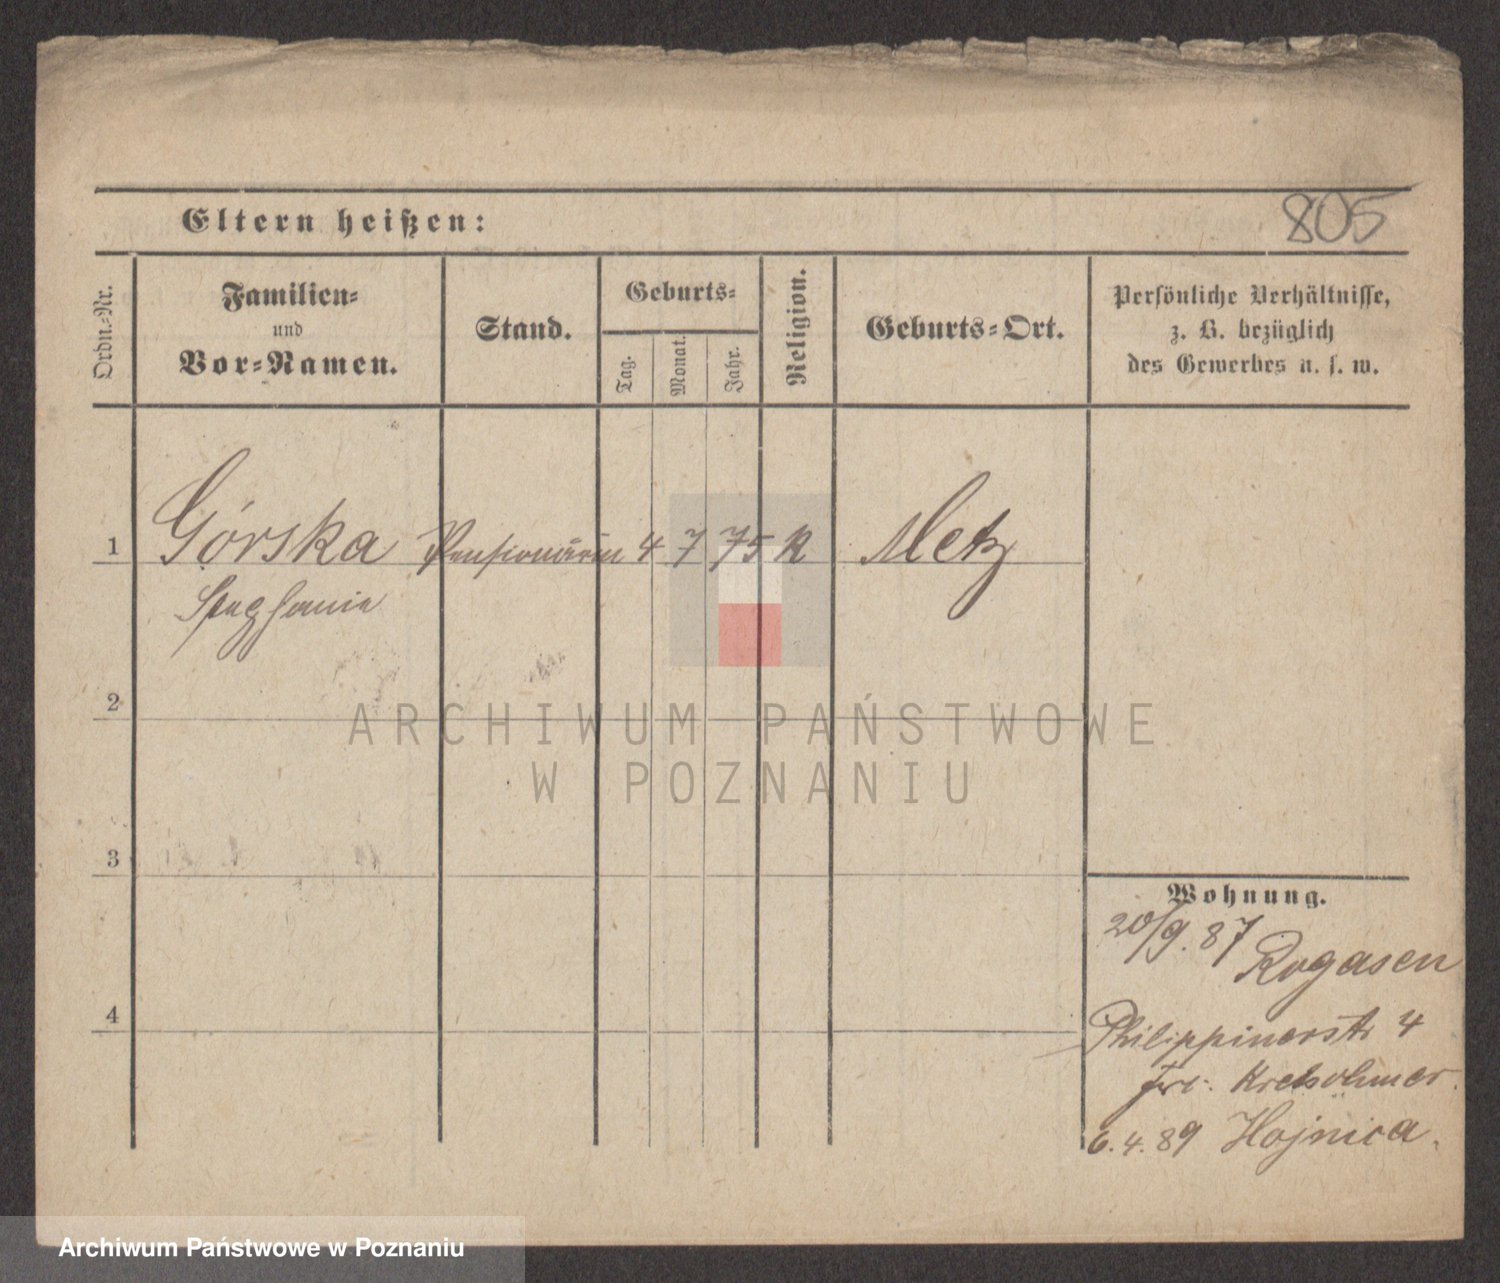 Eltern heißen:
805
Ordn.-Nr.
Familien-
und
Vor-Namen.
Stand.
Geburts-
Tag.
Monat.
Jahr.
Religion.
Geburts-Ort.
Persönliche Verhältnisse,
z. B. bezüglich
des Gewerbes u. s. w.
1 Górska Pensionärin 4 7 75 k Metz
Stephanie
2
ARCHIWUM PAŃSTWOWE
W POZNANIU
3
Wohnung.
20/9. 87
Rogasen
4
Philippinerstr 4
Frl. Kretschmer.
6.4.89 Hojnica.
Archiwum Państwowe w Poznaniu